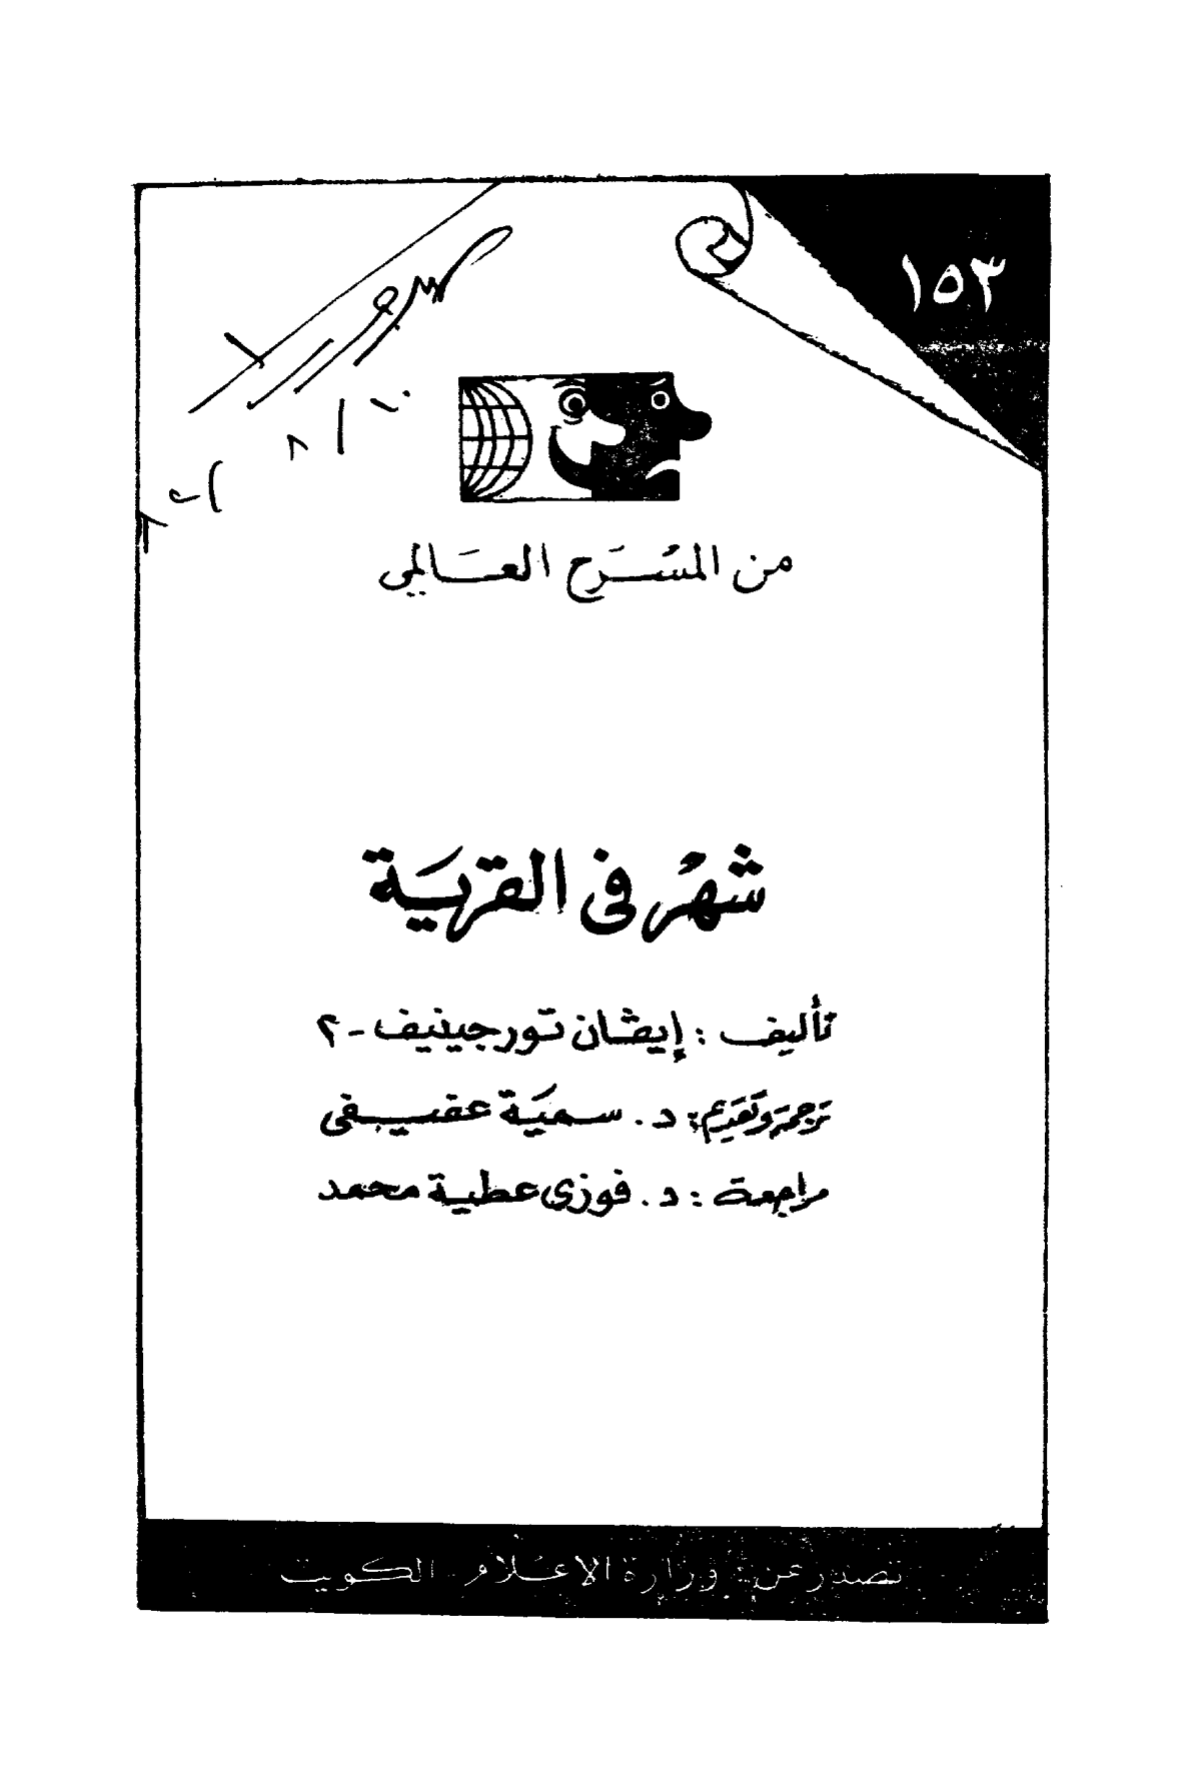 ١٥٣
من المسرح العالمي
شهر فى القرية
تأليف : إيڤان تورجينيف - ٢
ترجمة وتقديم : د . سمية عفيفى
مراجعة : د . فوزى عطية محمد
تصدر عن : وزارة الإعلام الكويت